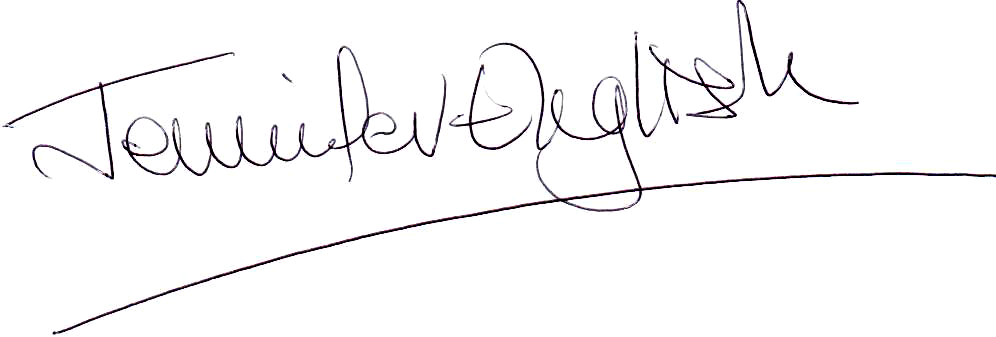 Jennifer English